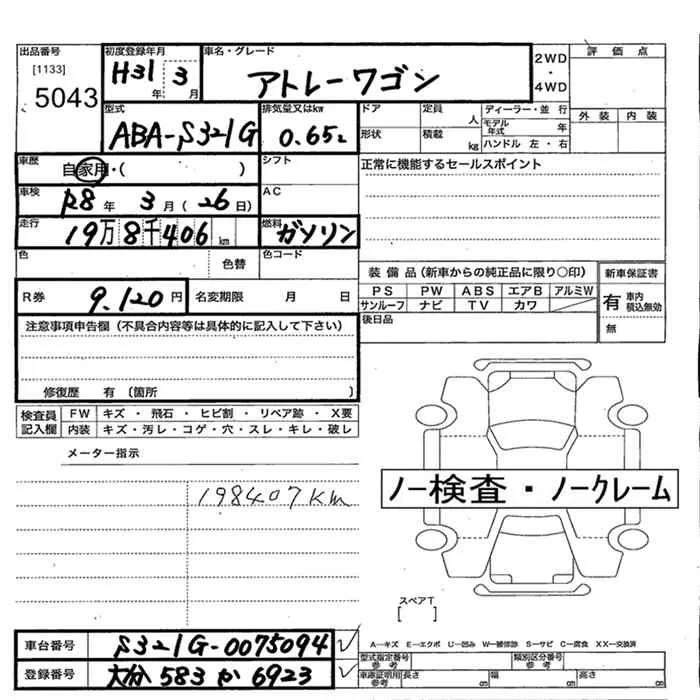 出品番号 初度登録年月 車名・グレード 2WD・4WD 評価点
[1133]
5043 H31年 3月 アトレーワゴン
型式 排気量又はkw ドア 定員 人 ディーラー・並行 外装 内装
ABA-S321G 0.65ℓ 形状 積載 kg モデル年式 年 ハンドル 左・右
車歴 自家用・( ) シフト 正常に機能するセールスポイント
車検 R8年 3月(26日) AC
走行 19万8千406km 燃料 ガソリン
色 色替 色コード 装備品(新車からの純正品に限り○印) 新車保証書
PS PW ABS エアB アルミW 有 車内積込無効
R券 9.120円 名変期限 月 日 サンルーフ ナビ TV カワ 無
注意事項申告欄(不具合内容等は具体的に記入して下さい) 後日品
修復歴 有 〔箇所 〕
検査員記入欄 FW キズ ・ 飛石 ・ ヒビ割 ・ リペア跡 ・ X要
内装 キズ・汚レ・コゲ・穴・スレ・キレ・破レ
メーター指示
198407km
ノー検査・ノークレーム
スペアT
[ ]
A―キズ E―エクボ U―凹み W―補修跡 S―サビ C―腐食 XX―交換済
車台番号 S321G-0075094 型式指定番号 参考 類別区分番号 参考
登録番号 大分583か6923 車庫証明用 参考 長さ cm 幅 cm 高さ cm